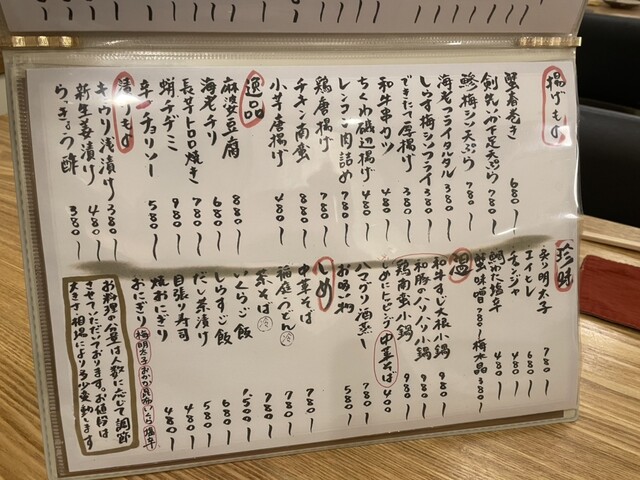 揚げもの
蟹春巻き 680ー
剣先いか下足天ぷら 780ー
鯵梅シソ天ぷら 780ー
海老フライタルタル 380ー
しらす梅シソフライ 380ー
できたて厚揚げ 380ー
和牛串カツ 480ー
ちくわ磯辺揚げ 480ー
レンコン肉詰め 780ー
鶏唐揚げ 780ー
チキン南蛮 880ー
小芋唐揚げ 480ー
逸品
麻婆豆腐 880ー
海老チリ 680ー
長芋トロロ焼き 780ー
蛸チヂミ 980ー
辛一チョリソー 580ー
漬けもの
キウリ浅漬け 380ー
新生姜漬け 480ー
らっきょう酢 380ー
珍味
炙り明太子 780ー
エイヒレ 680ー
チャンジャ 480ー
鯛わた塩辛 480ー
蟹味噌 780ー 梅水晶 380ー
温
和牛すじ大根小鍋 980ー
和豚ハリハリ小鍋 980ー
鶏南蛮小鍋 980ー
しめにトッピング 中華そば 400
ハマグリ酒蒸し 780ー
お吸い物 580ー
しめ
中華そば 780ー
稲庭うどん 冷 780ー
茶そば 冷 780ー
いくらご飯 1,500ー
しらすご飯 680ー
だし茶漬け 580ー
目張り寿司 480ー
焼おにぎり 480ー
おにぎり 梅 明太子 おかか 昆布 いくら 塩辛
お料理の分量は人数に応じて調節
させていただいております。お値段は
大きさ、相場により多少変動します